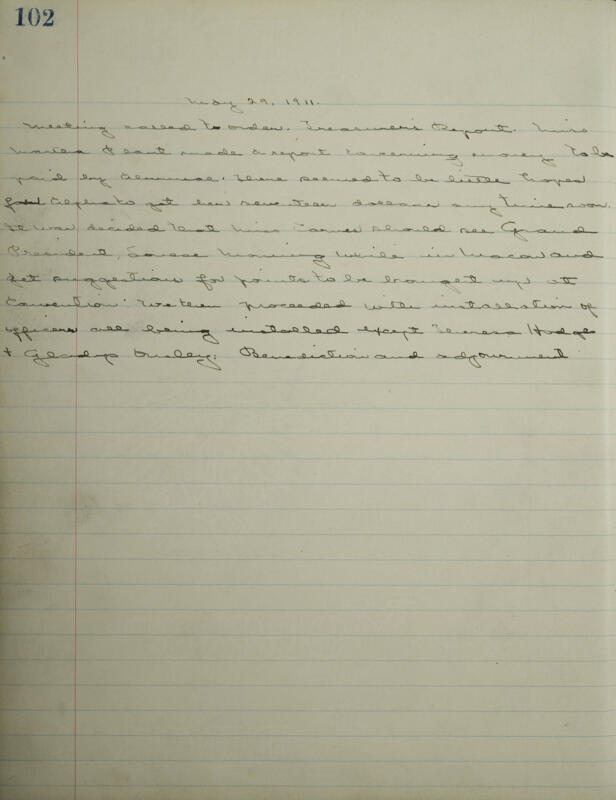 102
May 29, 1911.
Meeting called to order. Treasurer's Report. Miss
made a report concerning money to be
paid by Alumnae. There seemed to be little hopes
for Alpha to get her seventeen dollars anytime soon.
It was decided that Miss should see Grand
President, while in Macon and
get suggestion for points to be brought up at
Convention. We then proceeded with installation of
officers all being installed except Theresa Hodge
+ Gladys Benediction and adjournment